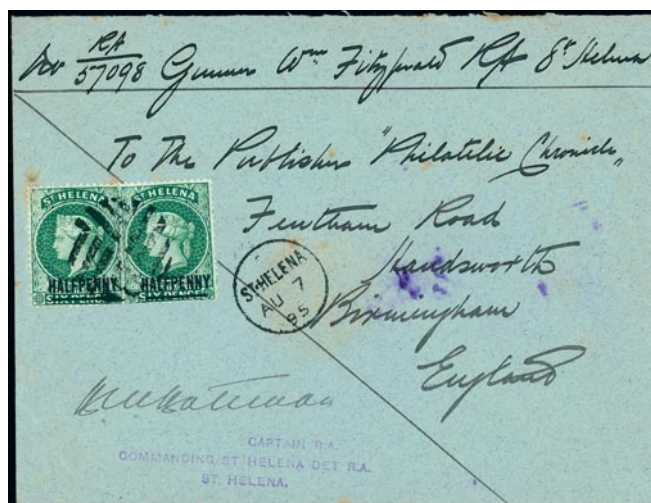 RA
57098 Gunner Wm Fitzgerald RA St Helena
To The Publisher "Philatelic Chronicle"
Fentham Road
Handsworth
Birmingham
England
ST HELENA ST HELENA
HALFPENNY HALFPENNY
ST. HELENA
AU 7
95
CAPTAIN R.A.
COMMANDING ST HELENA DET R.A.
ST. HELENA.